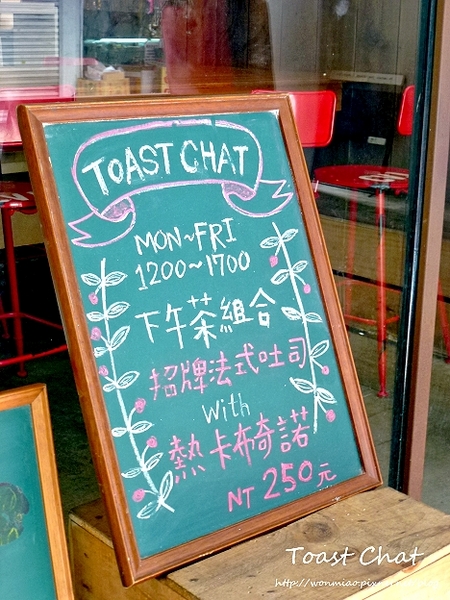 TOAST CHAT
MON~FRI
1200~1700
下午茶組合
招牌法式吐司
with
熱卡布奇諾
NT 250元
Toast Chat